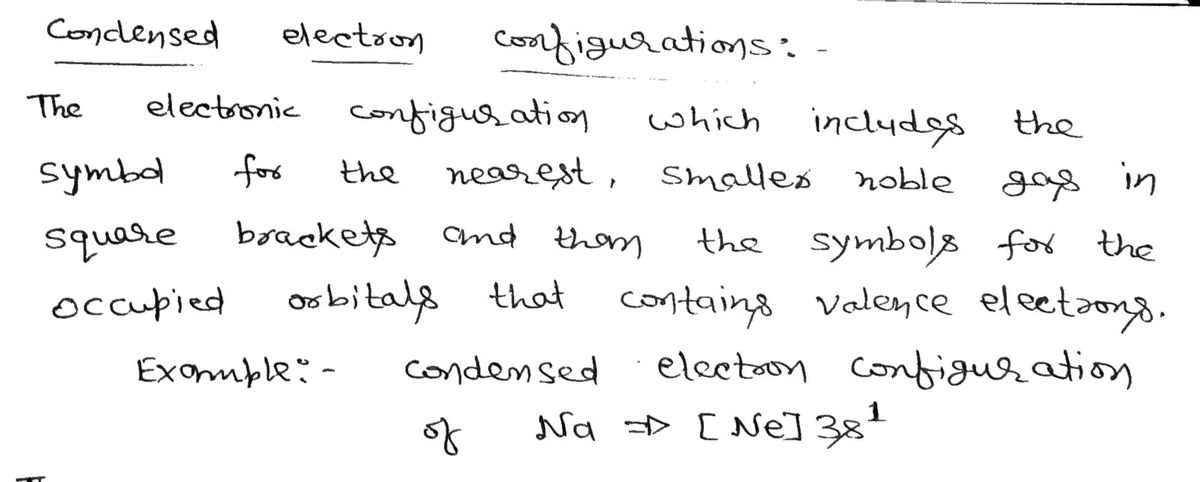 Condensed electron configurations:-
The electronic configuration which includes the
symbol for the nearest, smaller noble gas in
square brackets and then the symbols for the
occupied orbitals that contains valence electrons.
Example:- condensed electron configuration
of Na ⇒ [Ne] 3s¹